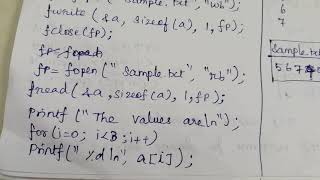 fwrite (&a, sizeof(a), 1, fp);
fclose(fp);
fp = fopen
fp = fopen (" Sample.txt", "rb");
fread (&a, sizeof(a), 1, fp);
printf (" The values are\n");
for (i=0; i<3; i++)
printf(" %d\n", a[i]);
6
7
Sample.txt
5 6 7